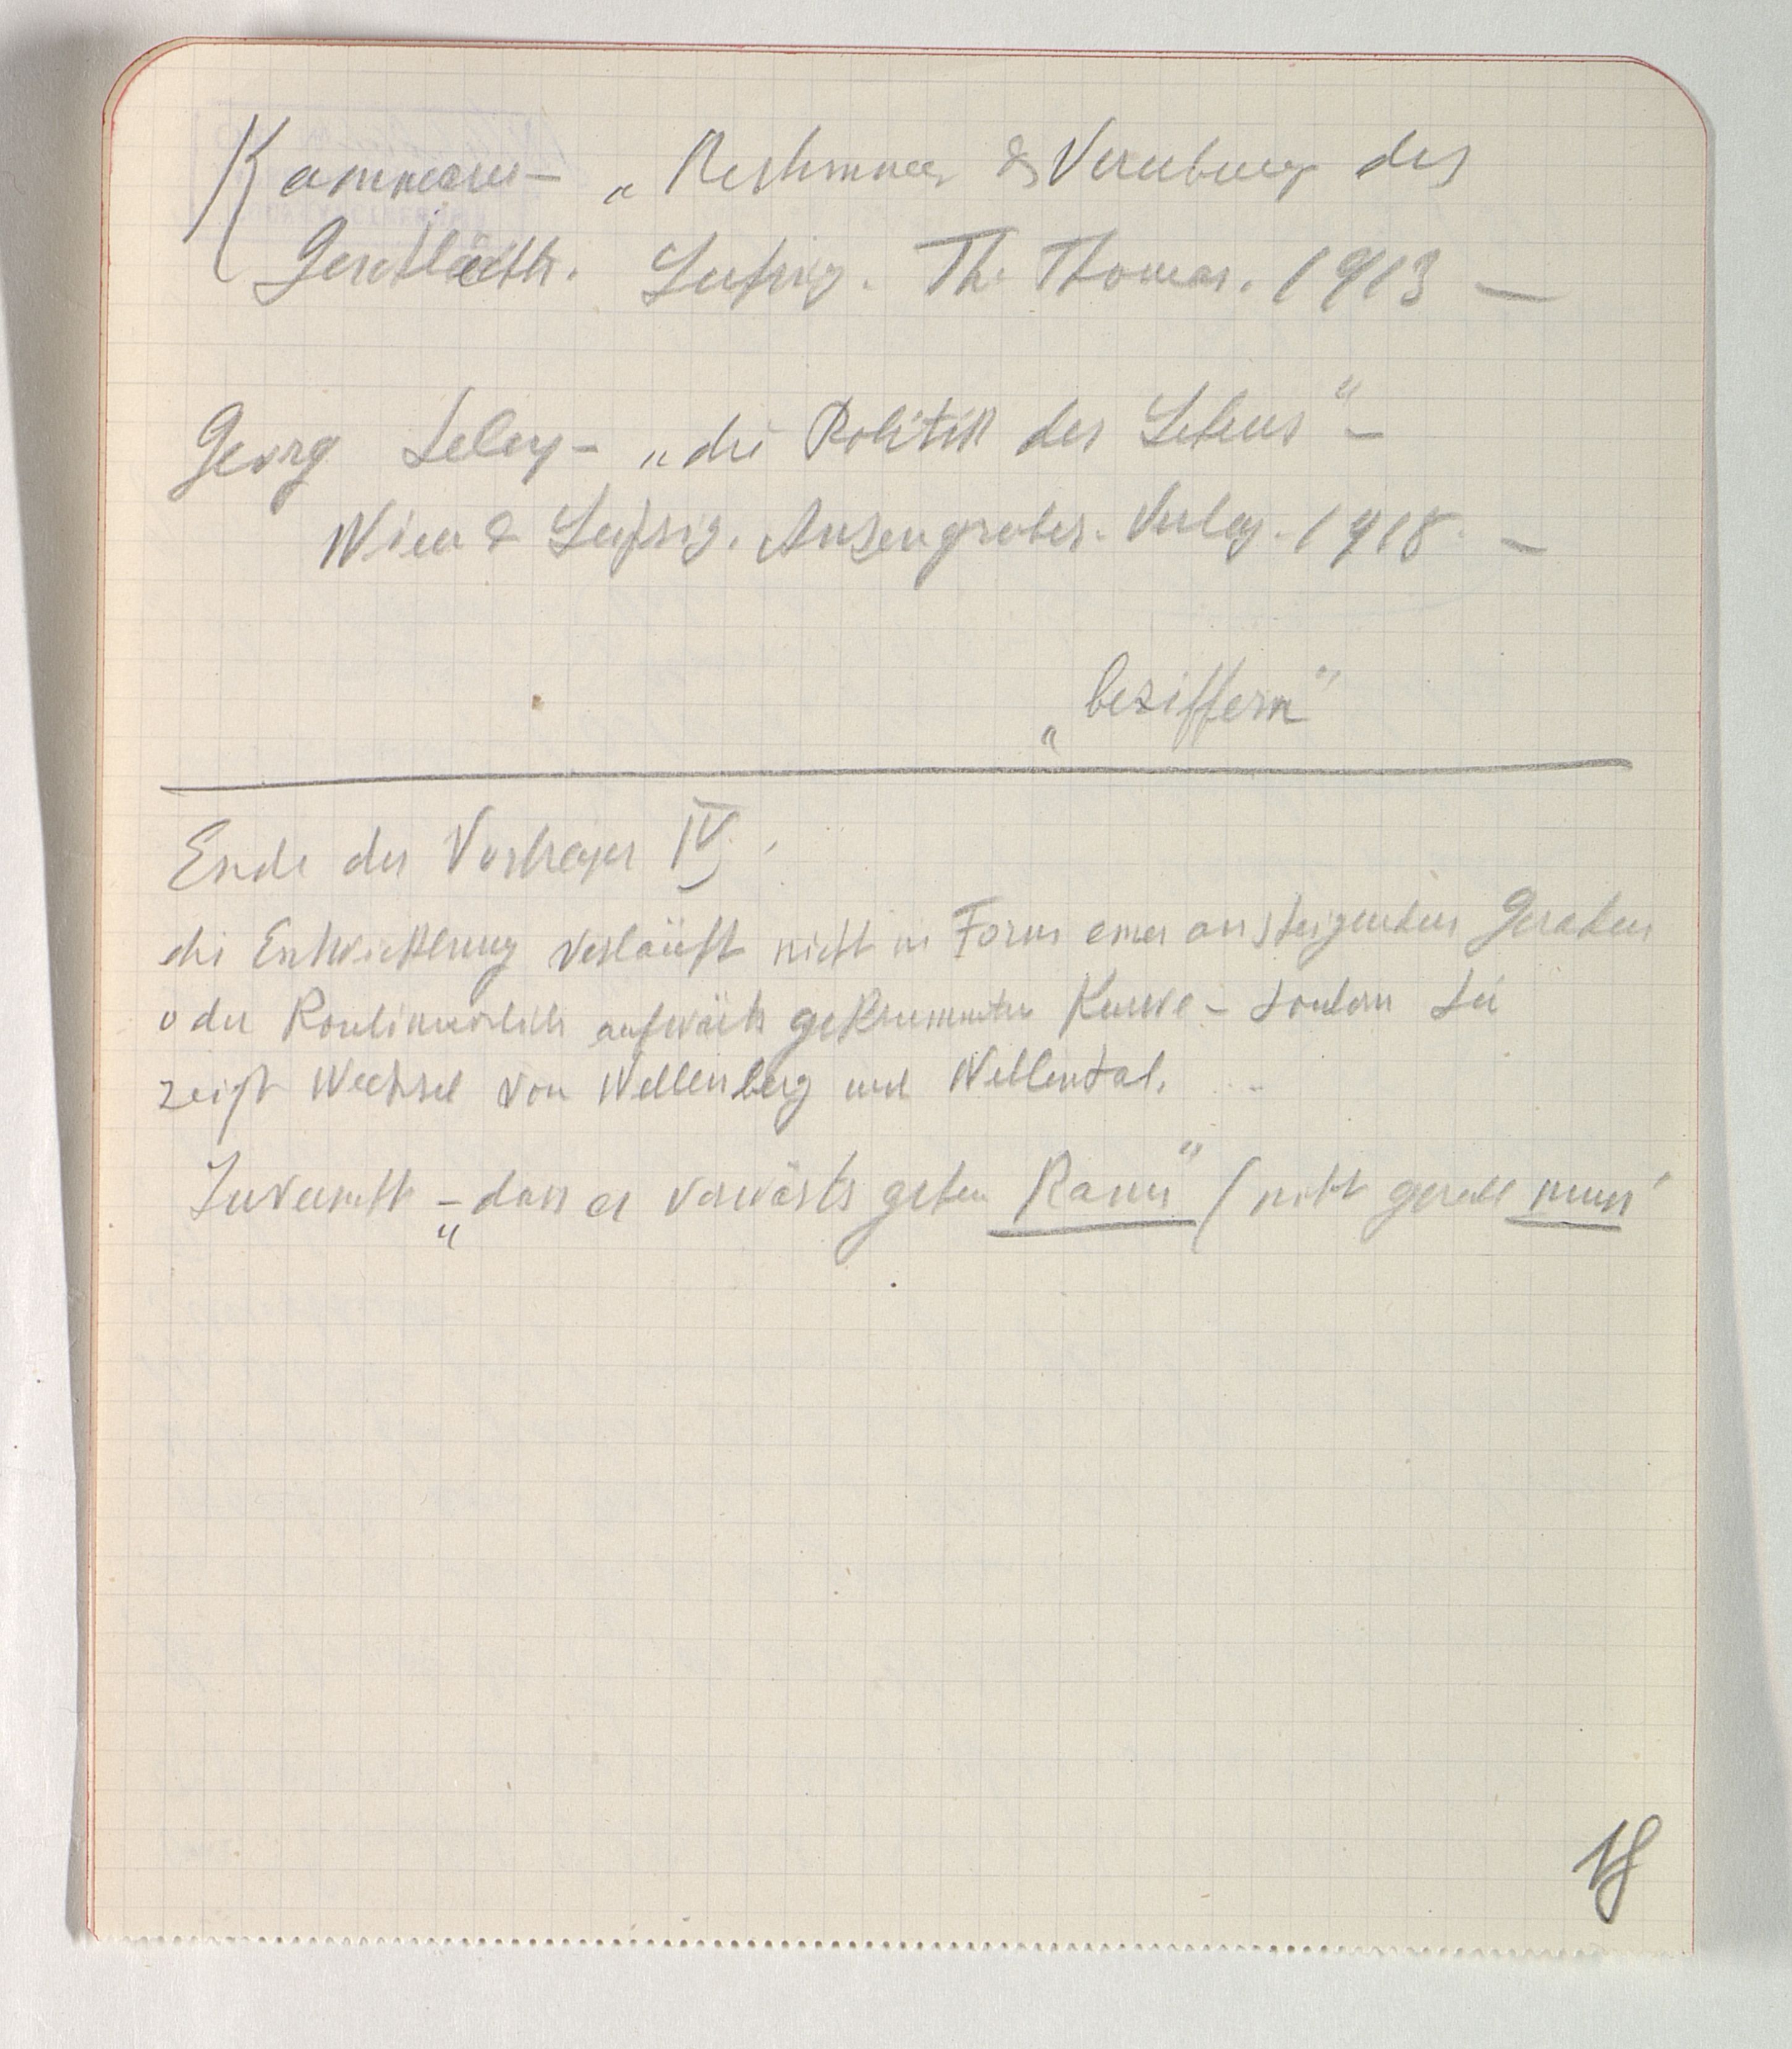 Kammerer – „Bestimmung & Vererbung des
Geschlechts. Leipzig. Th. Thomas. 1913 —
Georg – „die Politik des Lebens“ –
Wien & Leipzig. Anzengruber. Verlag. 1918. –
„beziffern“
Ende des Vortrages IV.
die Entwicklung verläuft nicht in Form einer ansteigenden Geraden
oder kontinuierlich aufwärts gekrümmten Kurve – sondern sie
zeigt Wechsel von Wellenberg und Wellental.
Zuversicht – „dass es vorwärts gehen kann“ (nicht gerade muss